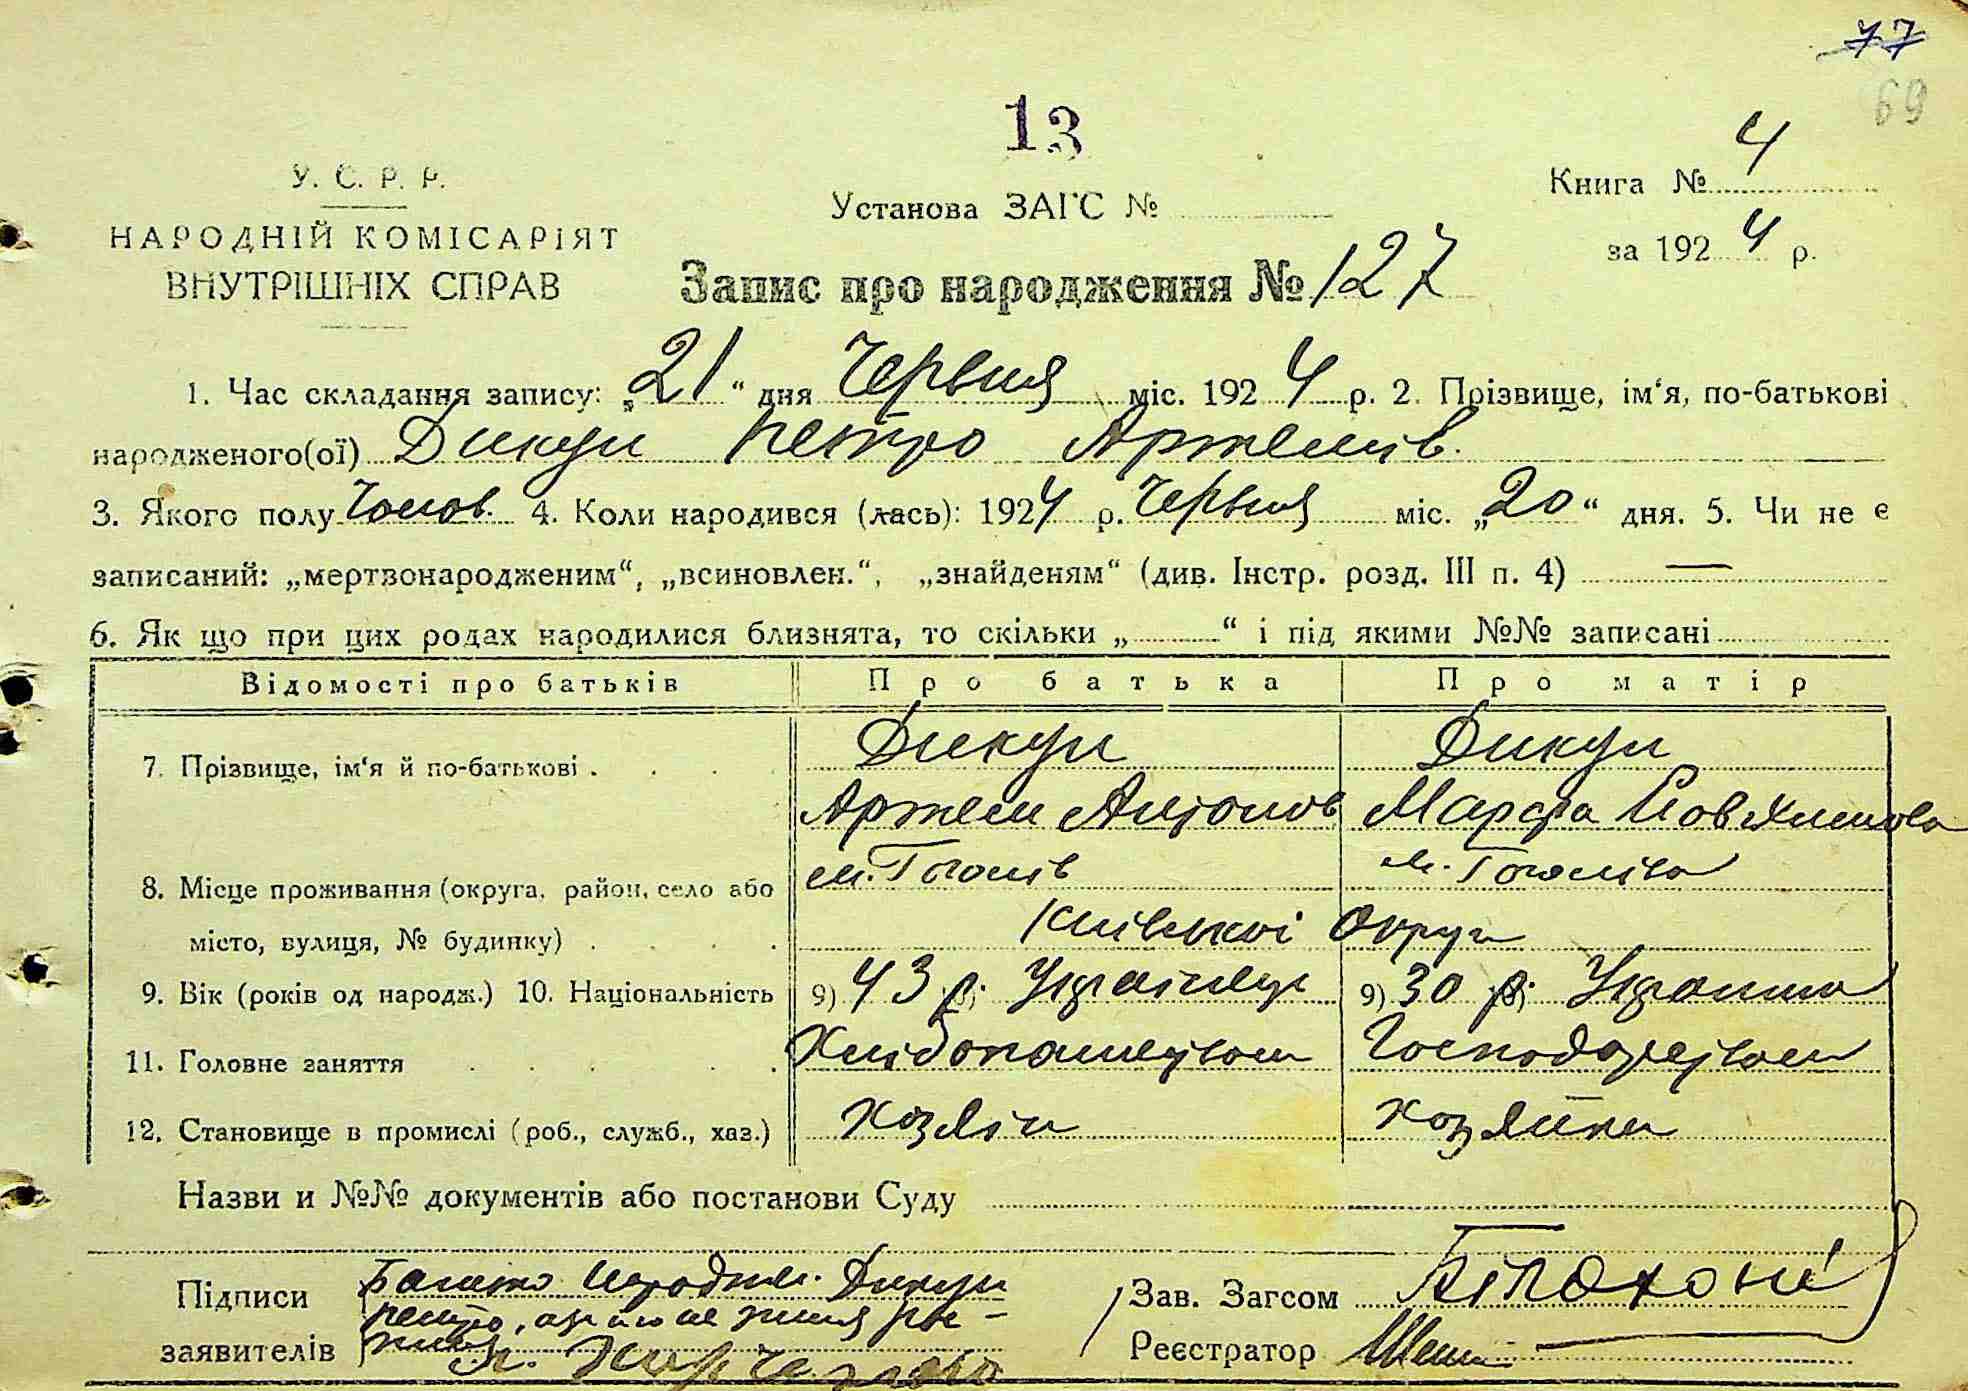 77
69
13
У. С. Р. Р.
НАРОДНІЙ КОМІСАРІЯТ
ВНУТРІШНІХ СПРАВ
Установа ЗАГС №
Книга № 4
за 1924 р.
Запис про народження № 127
1. Час складання запису: „21“ дня Червня міс. 1924 р. 2. Прізвище, ім‘я, по-батькові
народженого(ої) Дикун Петро Артемів.
3. Якого полу Чолов. 4. Коли народився (лась): 1924 р. Червня міс. „20“ дня. 5. Чи не є
записаний: „мертвонародженим“, „всиновлен.“, „знайденям“ (див. Інстр. розд. III п. 4) —
6. Як що при цих родах народилися близнята, то скільки „ “ і під якими №№ записані
Відомості про батьків Про батька Про матір
7. Прізвище, ім‘я й по-батькові . Дикун Дикун
Артем Антонов Марфа
8. Місце проживання (округа, район, село або м. Гоголів м. Гоголіва
місто, вулиця, № будинку) . Київської Округи
9. Вік (років од народж.) 10. Національність 9) 43 р. Українец 9) 30 р. Українка
11. Головне заняття Хлібопашецтвом Господарством
12. Становище в промислі (роб., служб., хаз.) хозяін хозяйка
Назви и №№ документів або постанови Суду
Підписи Батько народжен. Дикун
заявителів
Зав. Загсом
Реєстратор